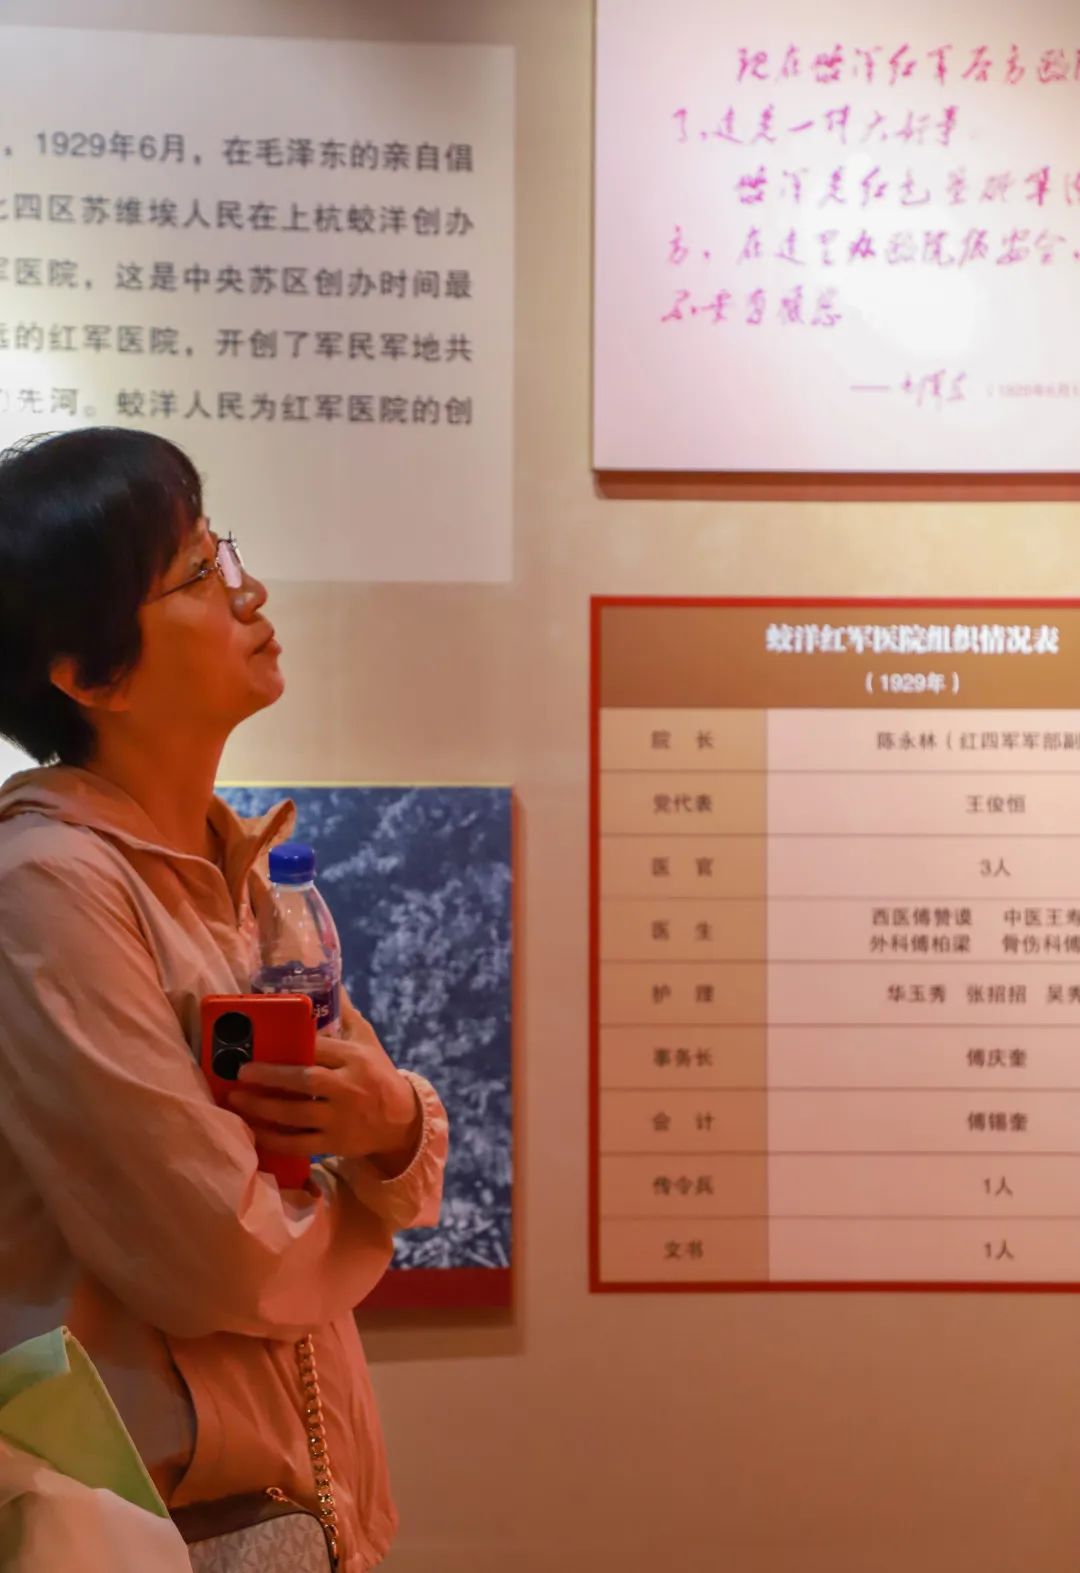 ，1929年6月，在毛泽东的亲自倡
四区苏维埃人民在上杭蛟洋创办
军医院，这是中央苏区创办时间最
远的红军医院，开创了军民军地共
先河。蛟洋人民为红军医院的创
现在蛟洋红军后方医院
了，这是一件大好事
蛟洋是红色
方，在这里办医院很安全，
不要有顾忌
—— 毛泽东
蛟洋红军医院组织情况表
（1929年）
院 长 陈永林（红四军军部副
党代表 王俊恒
医 官 3人
医 生 西医傅赞谟 中医王寿
外科傅柏梁 骨伤科傅
护 理 华玉秀 张招招 吴秀
事务长 傅庆奎
会 计 傅锡奎
传令兵 1人
文书 1人